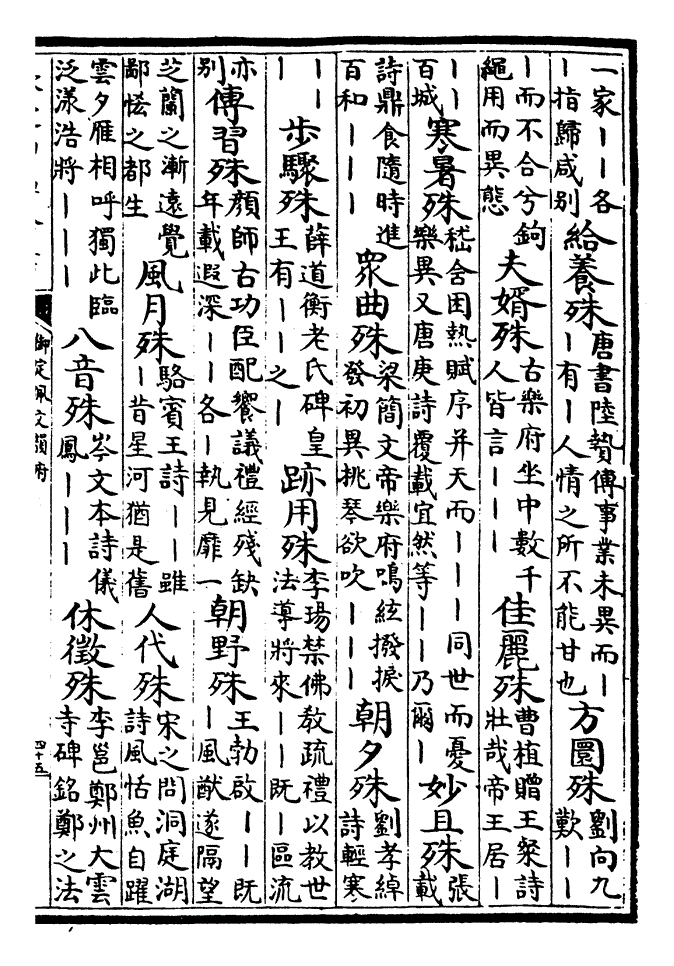 一家丨丨各
丨指歸咸别
給養殊
唐書陸贄傳事業未異而丨
丨有丨人情之所不能甘也
方圓殊
劉向九
歎丨丨
丨而不合兮鉤
繩用而異態
夫婿殊
古樂府坐中數千
人皆言丨丨丨
佳麗殊
曹植贈王粲詩
壯哉帝王居丨
丨丨
百城
寒暑殊
嵇含困熱賦序并天而丨丨丨同世而憂
樂異又唐庚詩覆載宜然等丨丨乃爾丨
妙且殊
張
載
詩鼎食隨時進
百和丨丨丨
眾曲殊
梁簡文帝樂府鳴絃撥捩
發初異挑琴欲吹丨丨丨
朝夕殊
劉孝綽
詩輕寒
丨丨
丨
步驟殊
薛道衡老氏碑皇
王有丨丨之丨
跡用殊
李瑒禁佛教疏禮以教世
法導將來丨丨既丨區流
亦
别
傳習殊
顔師古功臣配饗議禮經殘缺
年載遐深丨丨各丨執見靡一
朝野殊
王勃啟丨丨既
丨風猷遂隔望
芝蘭之漸遠覺
鄙恡之都生
風月殊
駱賓王詩丨丨雖
丨昔星河猶是舊
人代殊
宋之問洞庭湖
詩風恬魚自躍
雲夕雁相呼獨此臨
泛漾浩將丨丨丨
八音殊
岑文本詩儀
鳳丨丨丨
休徵殊
李邕鄭州大雲
寺碑銘鄭之法
御定佩文韻府
四十五